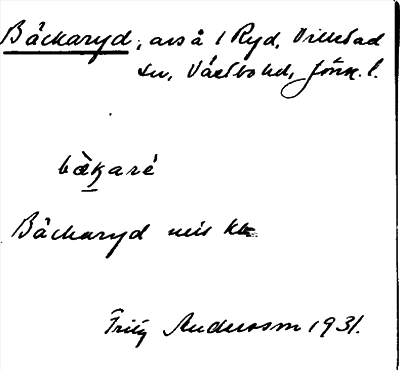 Bäckaryd, avs å 1 Ryd, Villstad
sn, Västbo hd, Jönk. l.
bæ̀ḵaré
Bäckaryd
Fritz Andersson 1931.